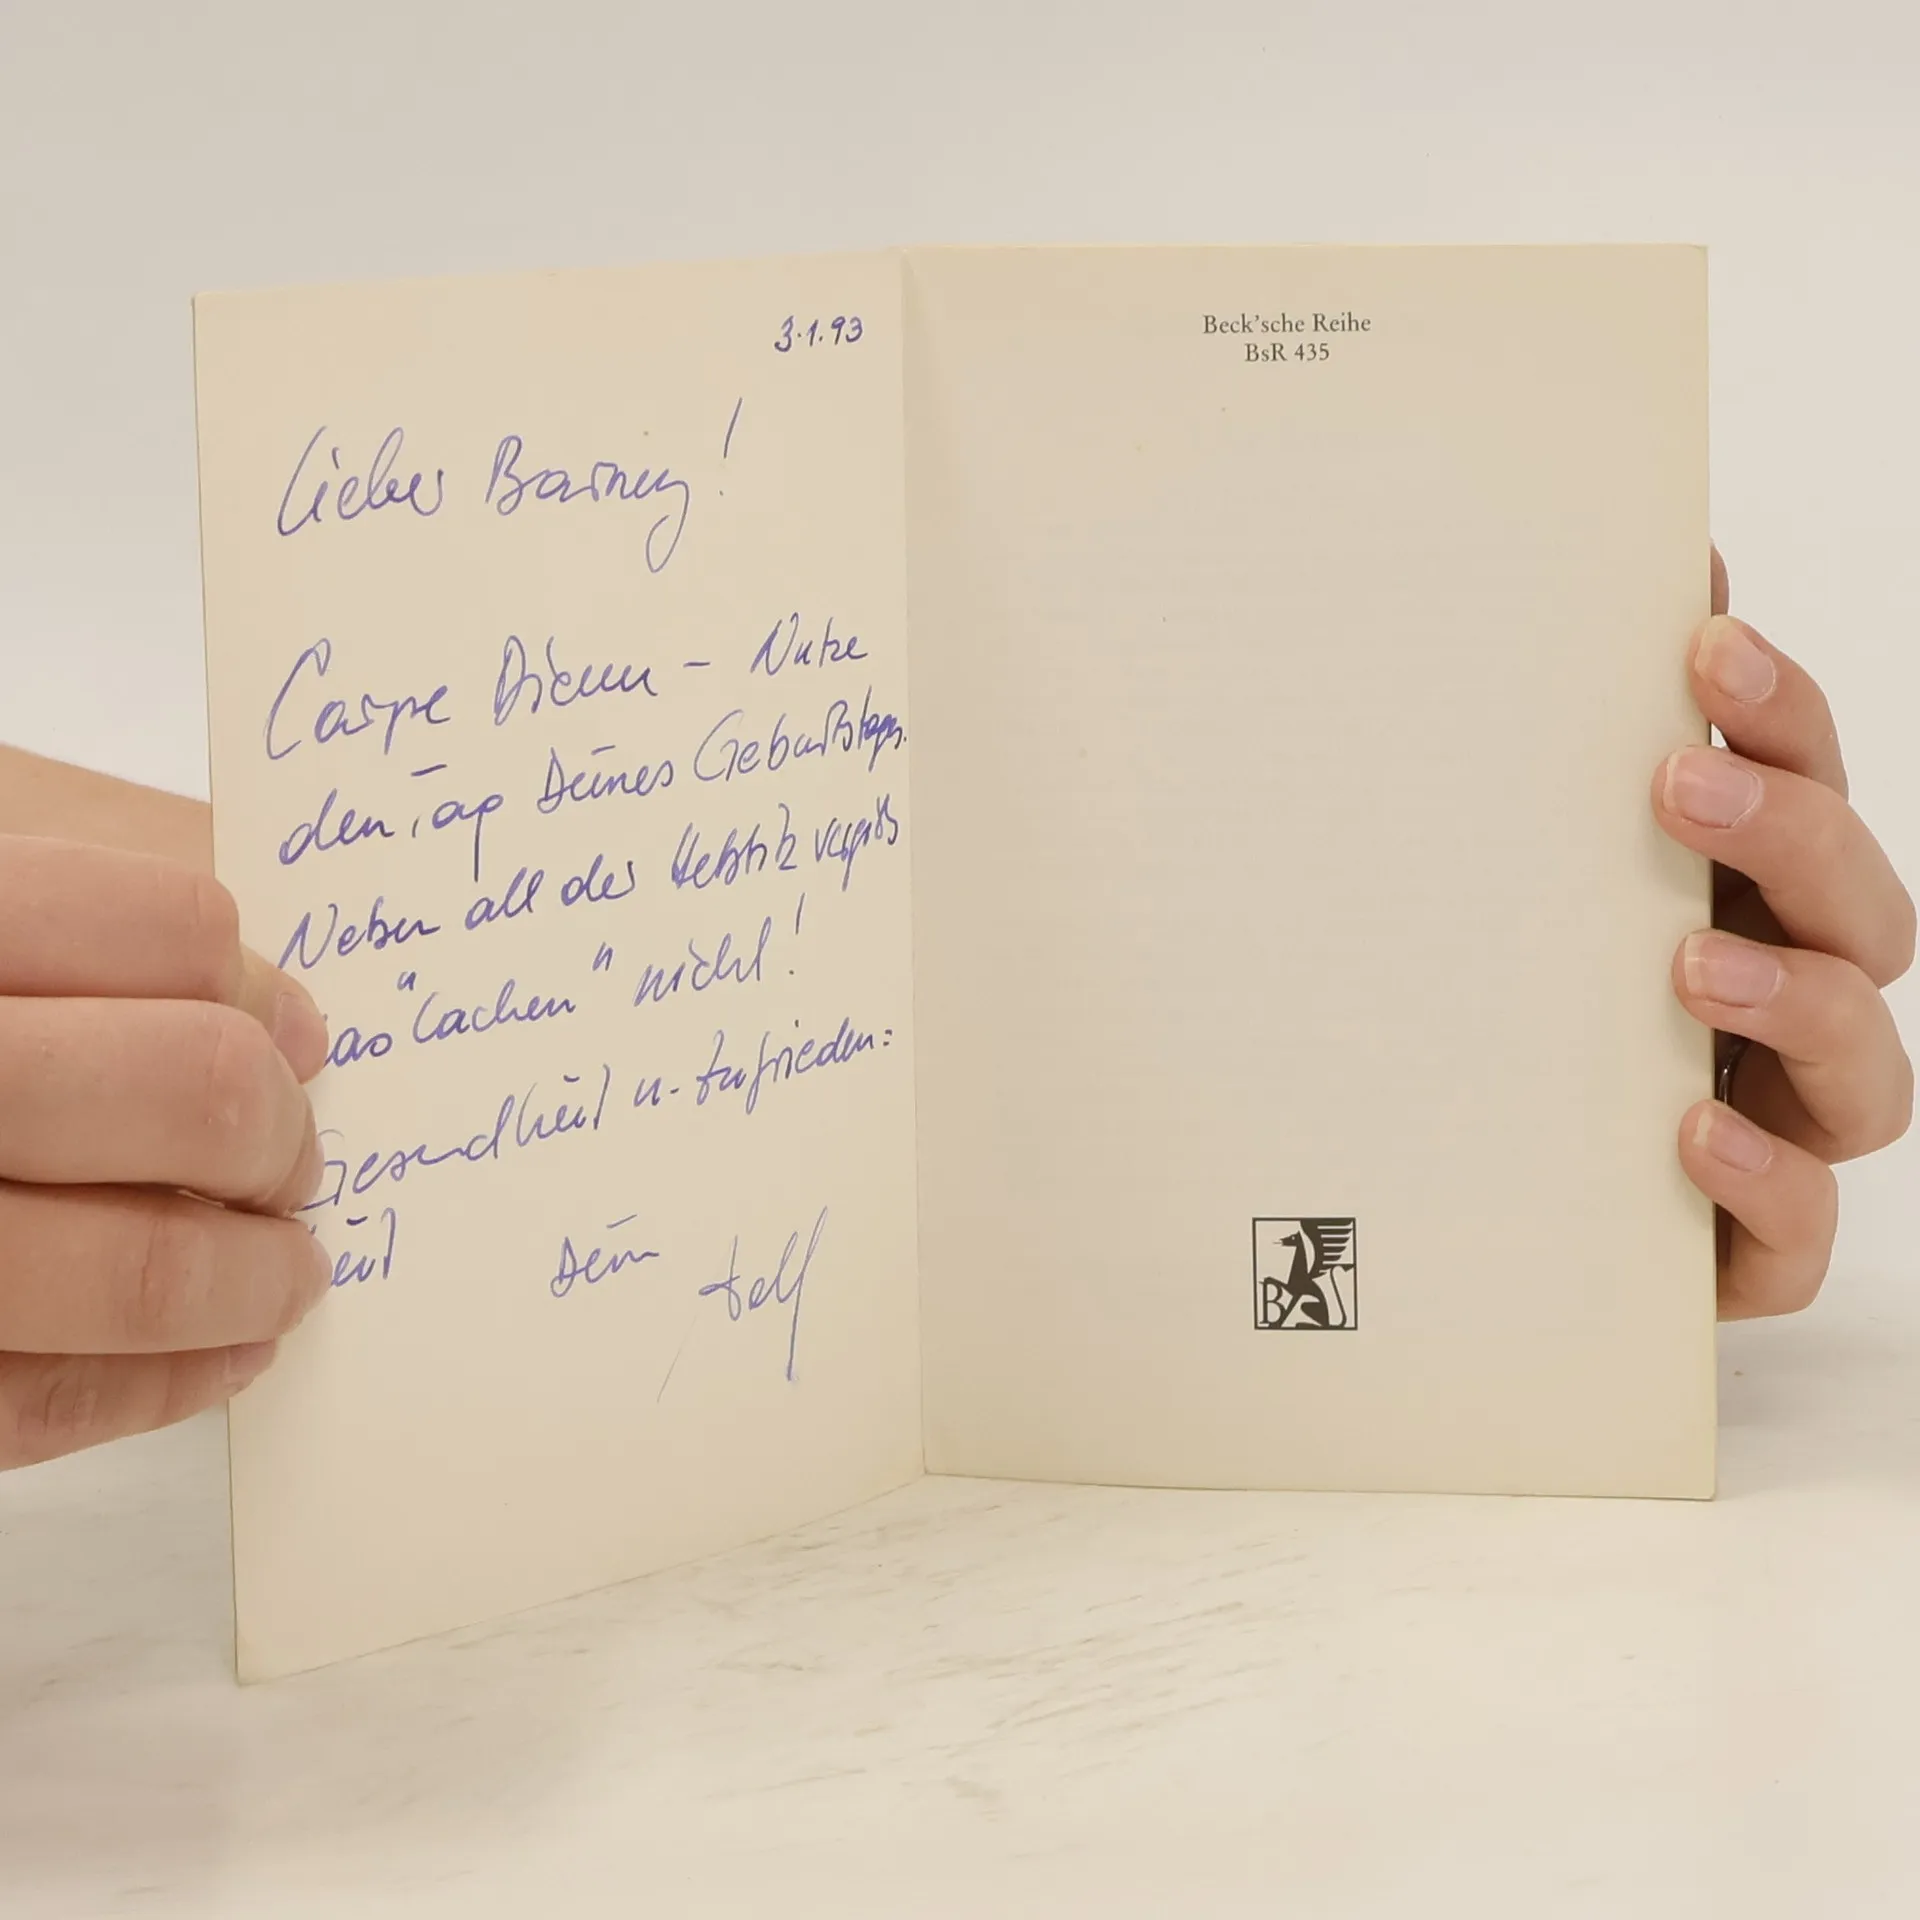 3.1.93
Lieber Barney!
Carpe Diem - Nutze
den Tag Deines Geburtstages.
Neben all der Hektik vergiß
das "Lachen" nicht!
Gesundheit u. Zufrieden=
heit Dein
Beck'sche Reihe
BsR 435
B S